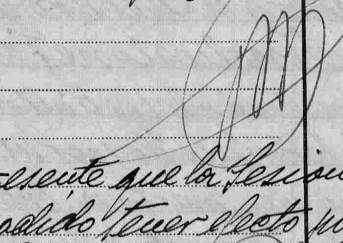 esente que la Sesion
odido tener efecto po